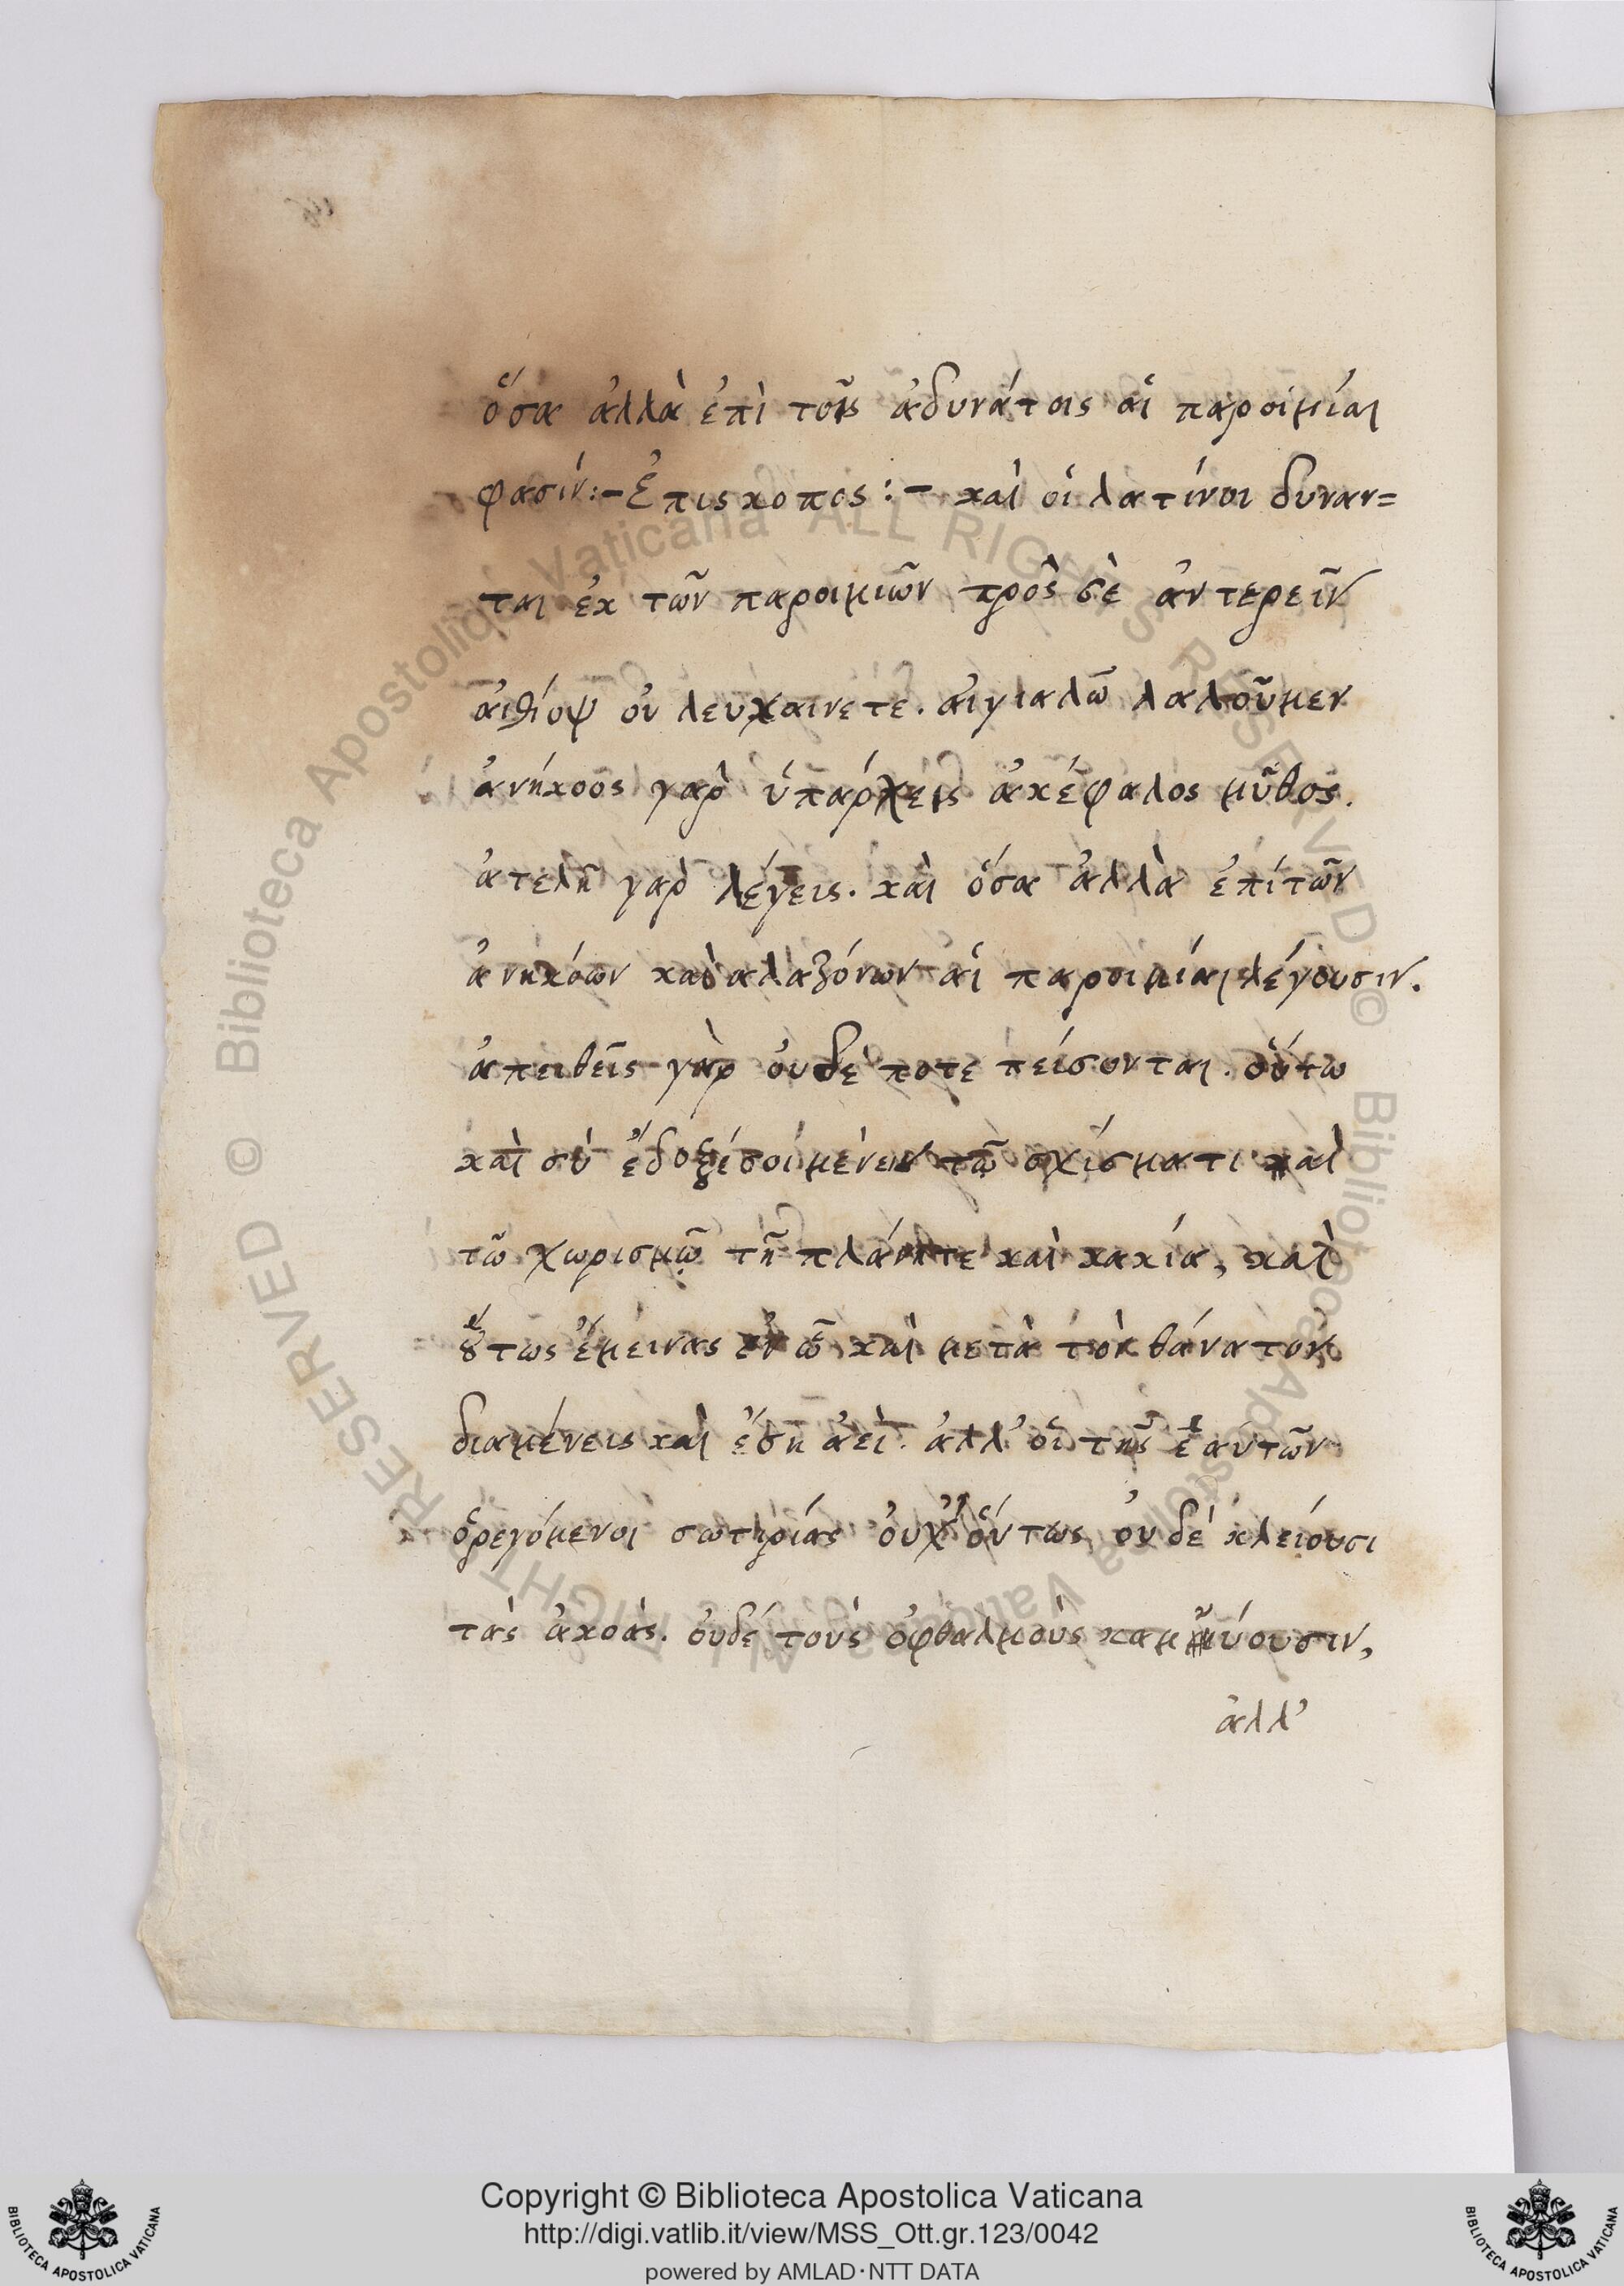 ὅσα ἀλλὰ ἐπὶ τοῖς ἀδυνάτοις αἱ παροιμίαι
φασίν:- Ἐπισκοπος:- καὶ οἱ λατίνοι δυναν=
ται ἐκ τῶν παροιμιῶν πρὸς σὲ ἀντερεῖν
ἀιθίοψ οὐ λευκαινετε. ἀιγιαλῶ λαλοῦμεν
ἀνήκοος γαρ ὑπάρχεις ἀκέφαλος μῦθος.
ἀτελῆ γαρ λέγεις. καὶ ὅσα ἀλλὰ ἐπί τῶν
ἀνηκόων καὶ αλαζόνων αἱ παροιμίαι λέγουσιν.
ἀπειθεῖς γὰρ ὀυδέ ποτε πείσονται. οὕτω
καὶ σὺ ἔδοξέ σοι μένειν τῷ σχίσματι καὶ
τῶ χωρισμῷ τῆ πλάνη τε καὶ κακία, καὶ
ὅυτως ἔμεινας ἐν ὧ καὶ μετὰ τὸν θάνατον
διαμένεις καὶ ἔση ἀεὶ. ἀλλ' οἱ τῆς ἑαυτῶν
ὀρεγόμενοι σωτηρίας ὀυχ' ὅυτως ὀυδέ κλείουσι
τὰς ἀκοὰς. ὀυδέ τοὺς ὀφθαλμοὺς καμμύουσιν,
ἀλλ'
© Biblioteca Apostolica Vaticana ALL RIGHTS RESERVED © Biblioteca Apostolica Vaticana ALL RIGHTS RESERVED
Copyright © Biblioteca Apostolica Vaticana
http://digi.vatlib.it/view/MSS_Ott.gr.123/0042
powered by AMLAD·NTT DATA
BIBLIOTECA APOSTOLICA VATICANA
BIBLIOTECA APOSTOLICA VATICANA